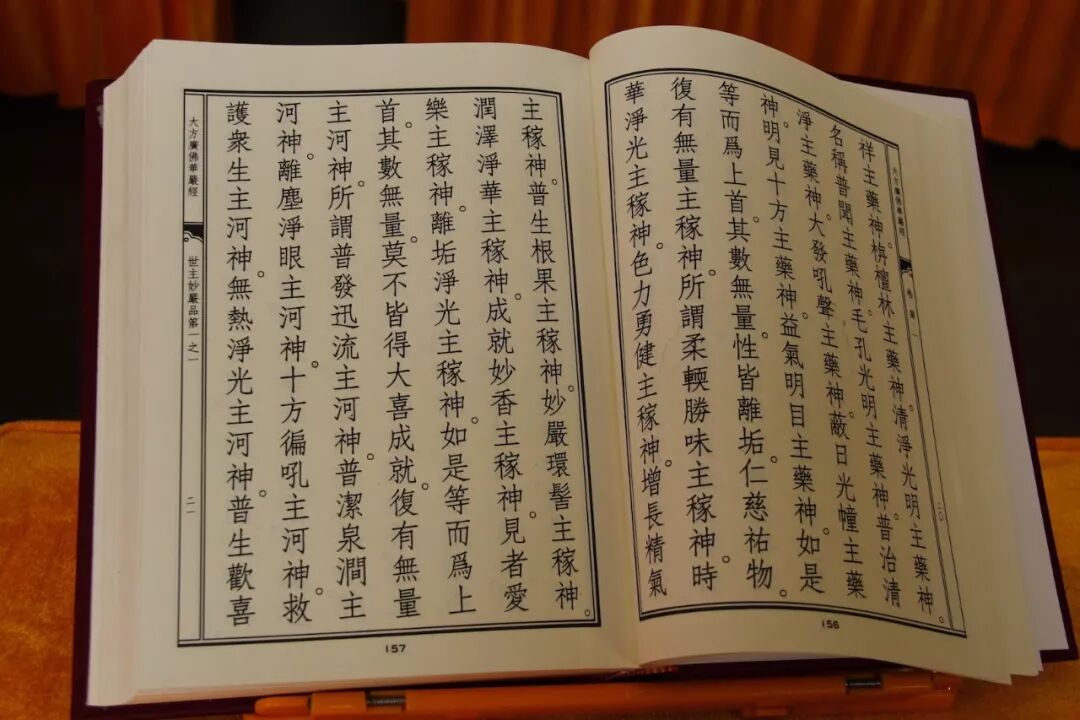 大方廣佛華嚴經
卷第一
二〇
祥主藥神。栴檀林主藥神。清淨光明主藥神。
名稱普聞主藥神。毛孔光明主藥神。普治清
淨主藥神。大發吼聲主藥神。蔽日光幢主藥
神。明見十方主藥神。益氣明目主藥神。如是
等而爲上首。其數無量。性皆離垢。仁慈祐物。
復有無量主稼神。所謂柔輭勝味主稼神。時
華淨光主稼神。色力勇健主稼神。增長精氣
156
主稼神。普生根果主稼神。妙嚴環髻主稼神。
潤澤淨華主稼神。成就妙香主稼神。見者愛
樂主稼神。離垢淨光主稼神。如是等而爲上
首。其數無量。莫不皆得大喜成就。復有無量
主河神。所謂普發迅流主河神。普潔泉澗主
河神。離塵淨眼主河神。十方徧吼主河神。救
護衆生主河神。無熱淨光主河神。普生歡喜
大方廣佛華嚴經
世主妙嚴品第一之一
二一
157